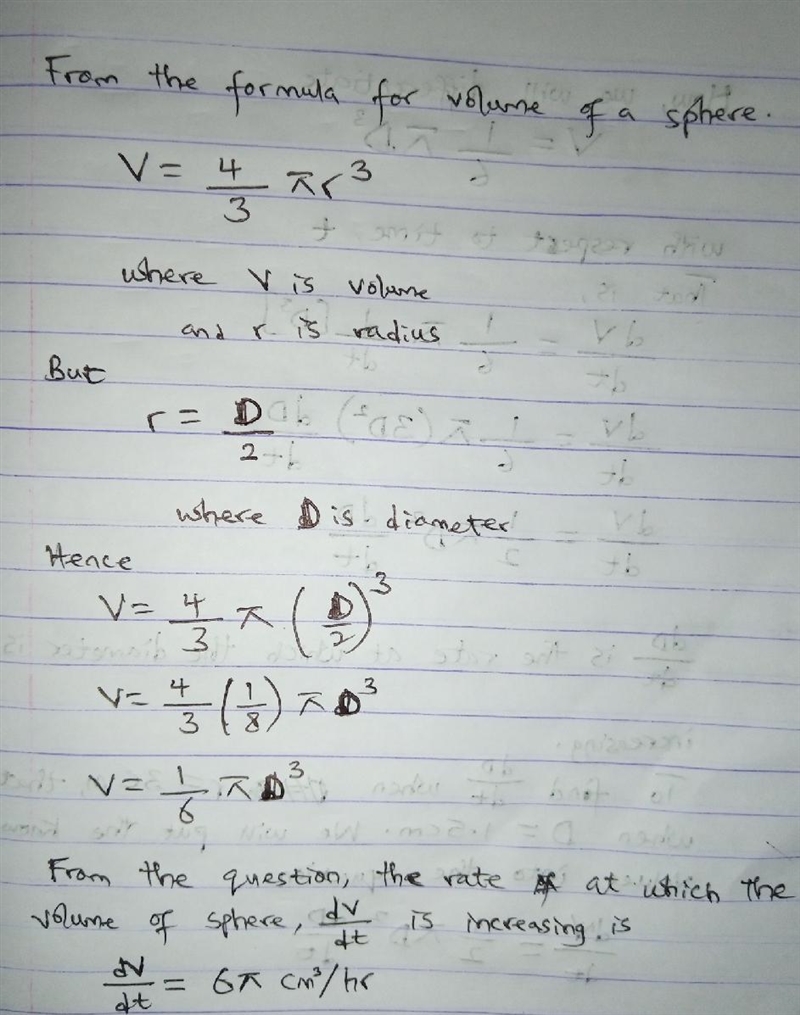 From the formula for volume of a sphere.
V = 4/3 πr³
where V is volume
and r is radius
But
r = D/2
where D is diameter
Hence
V = 4/3 π (D/2)³
V = 4/3 (1/8) πD³
V = 1/6 πD³
From the question, the rate at which the
volume of sphere, dV/dt is increasing is
dV/dt = 6π cm³/hr